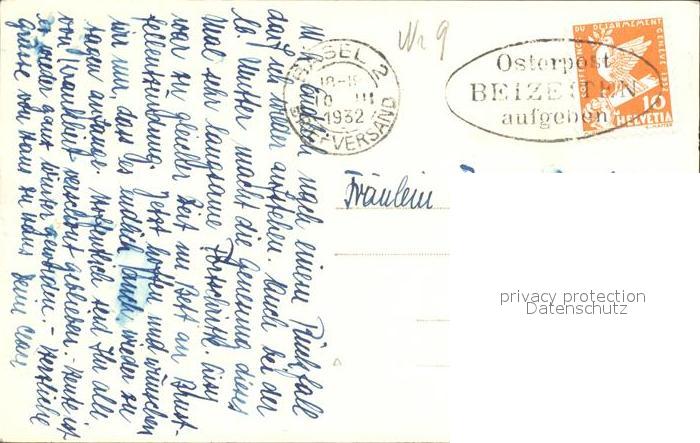 Nr 9
BASEL 2
10 III
1932
BRIEFVERSAND
Osterpost
BEIZEITEN
aufgeben
CONFERENCE DU DESARMEMENT GENEVE 1932
10
HELVETIA
Fräulein
privacy protection
Datenschutz
nach einem Rückfall
darf ich wieder aufstehen. Auch bei der
lb Mutter macht die Genesung dieses
Mal nur langsame Fortschritte. Eine
war zu gleicher Zeit im Bett an Brust-
fellentzündung. Jetzt hoffen und wünschen
wir nur dass es endlich auch wieder zu
tagen anfange. Hoffentlich seid Ihr alle
von Krankheit verschont geblieben. - Heute ist
es wieder ganz Winter geworden. - Herzliche
Grüsse von Haus zu Haus Dein